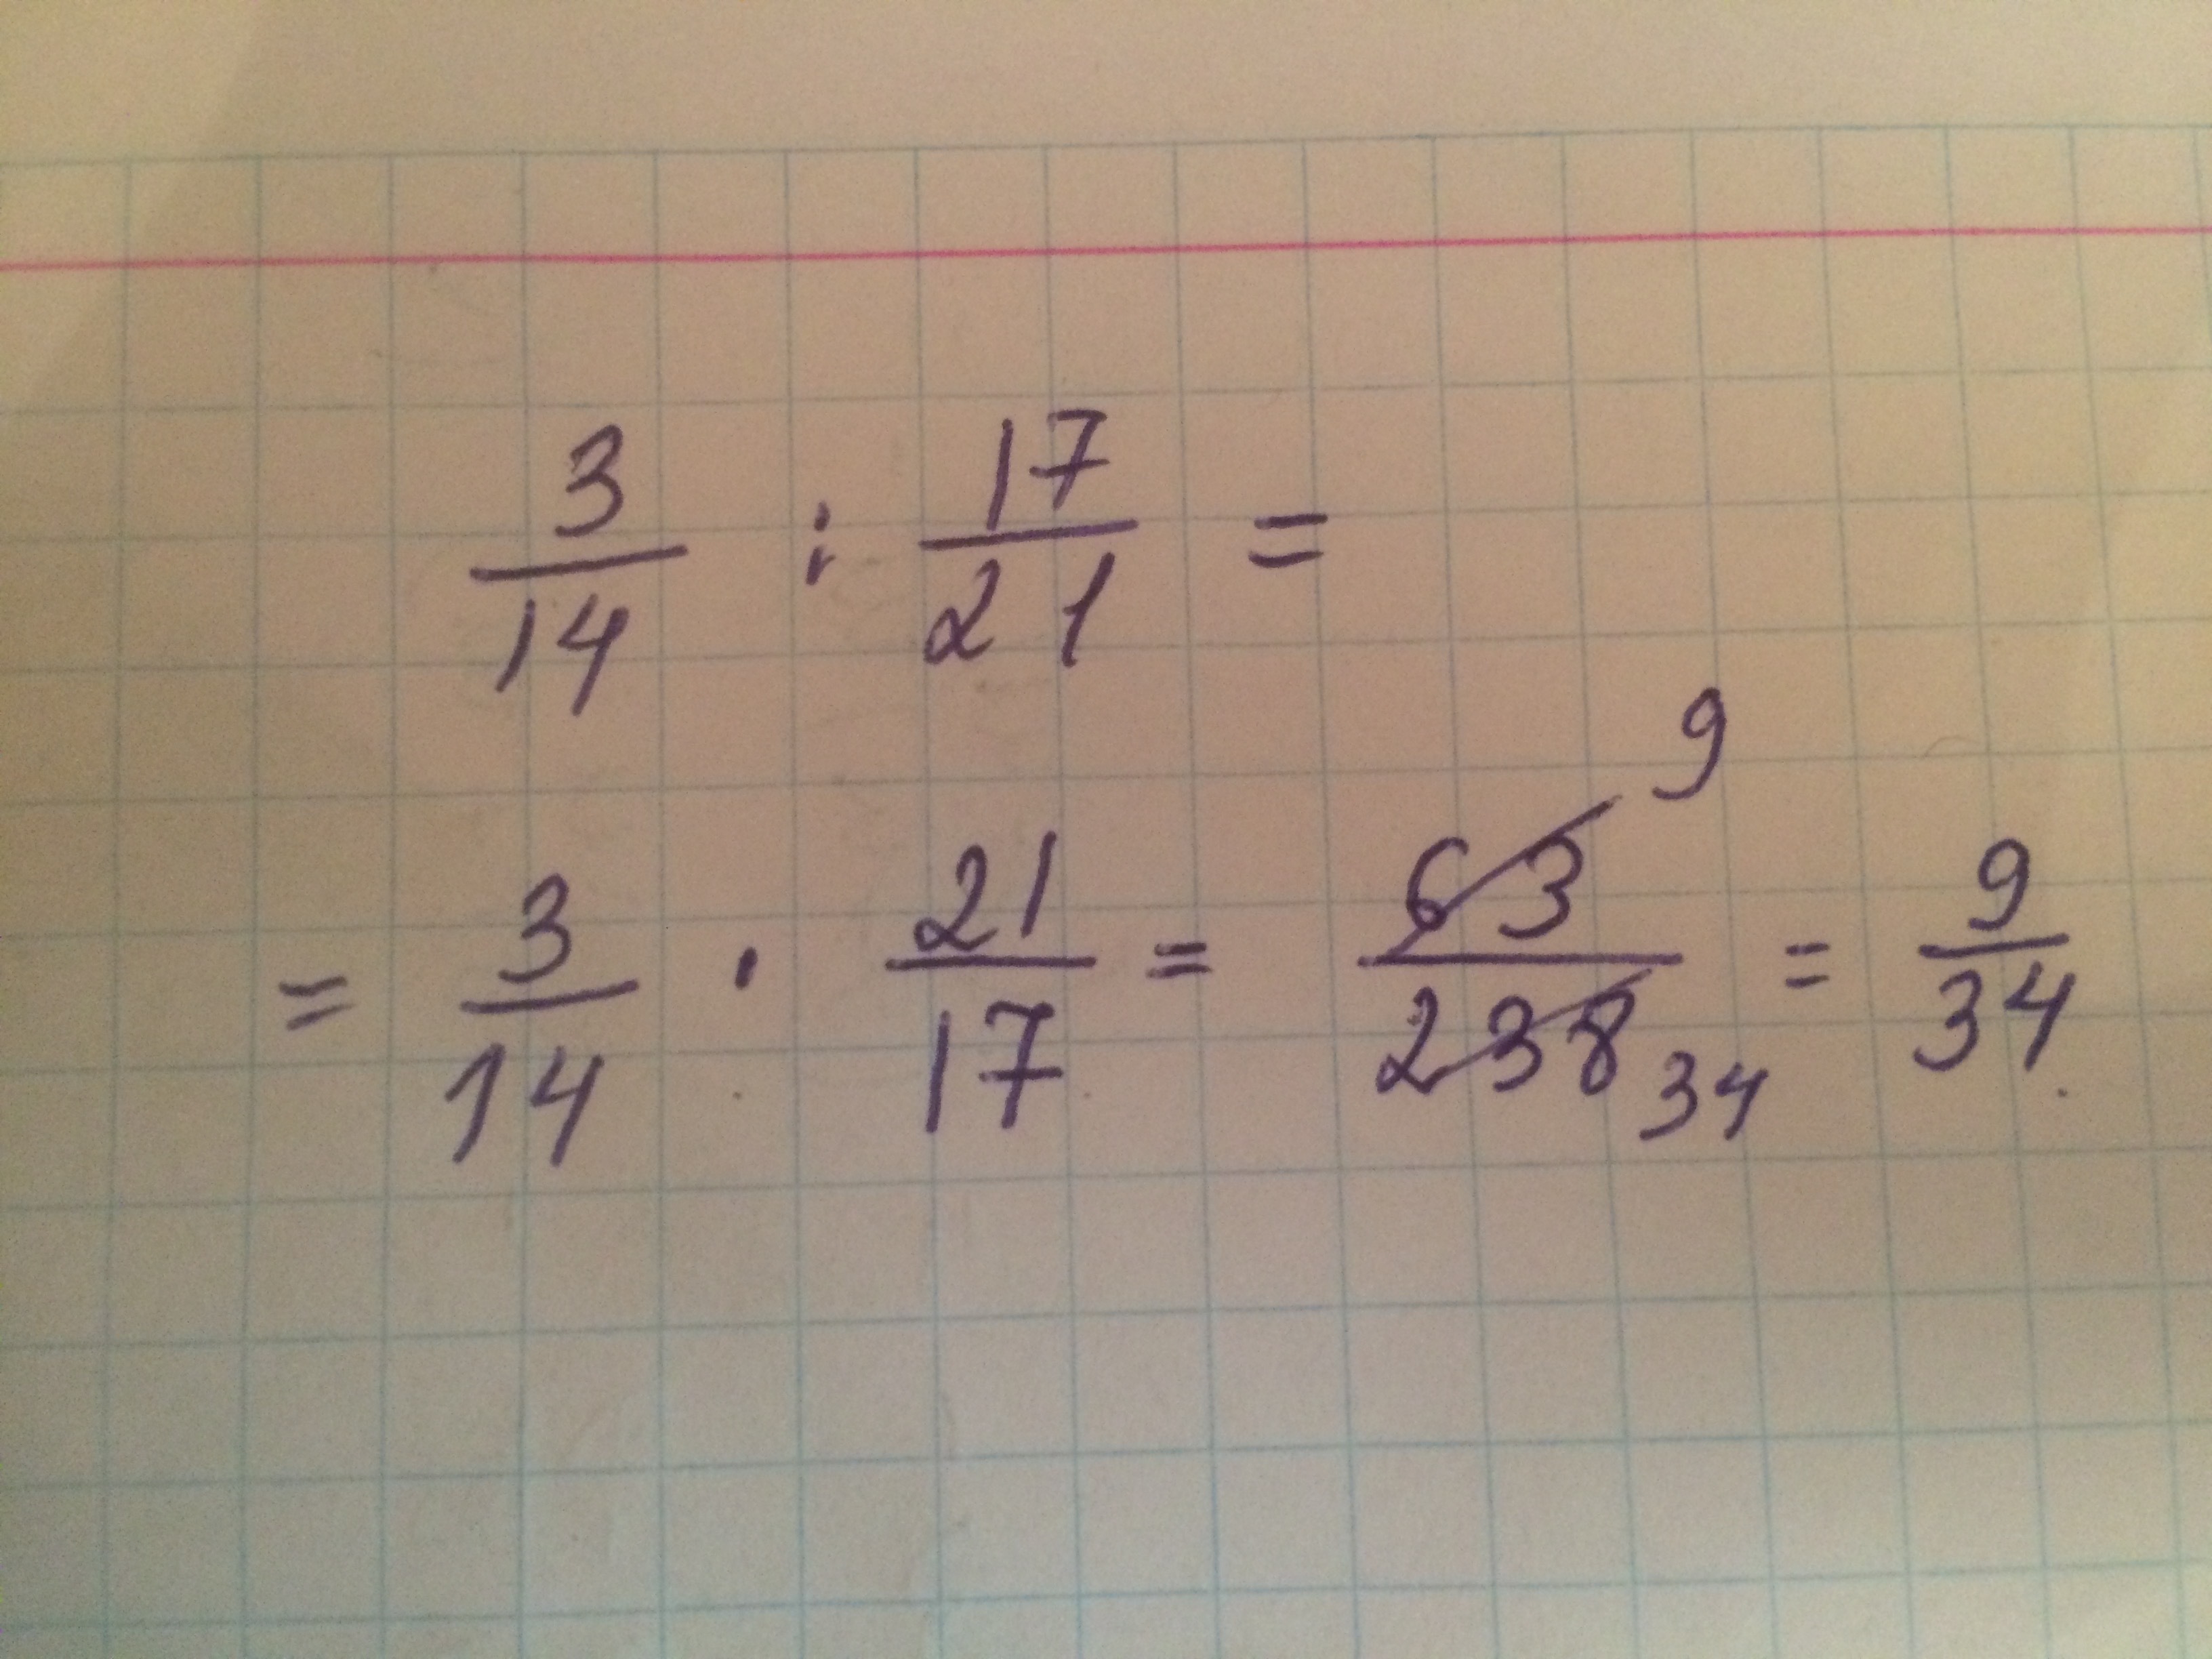 3/14 : 17/21 =
= 3/14 · 21/17 = 63 9/238 34 = 9/34.